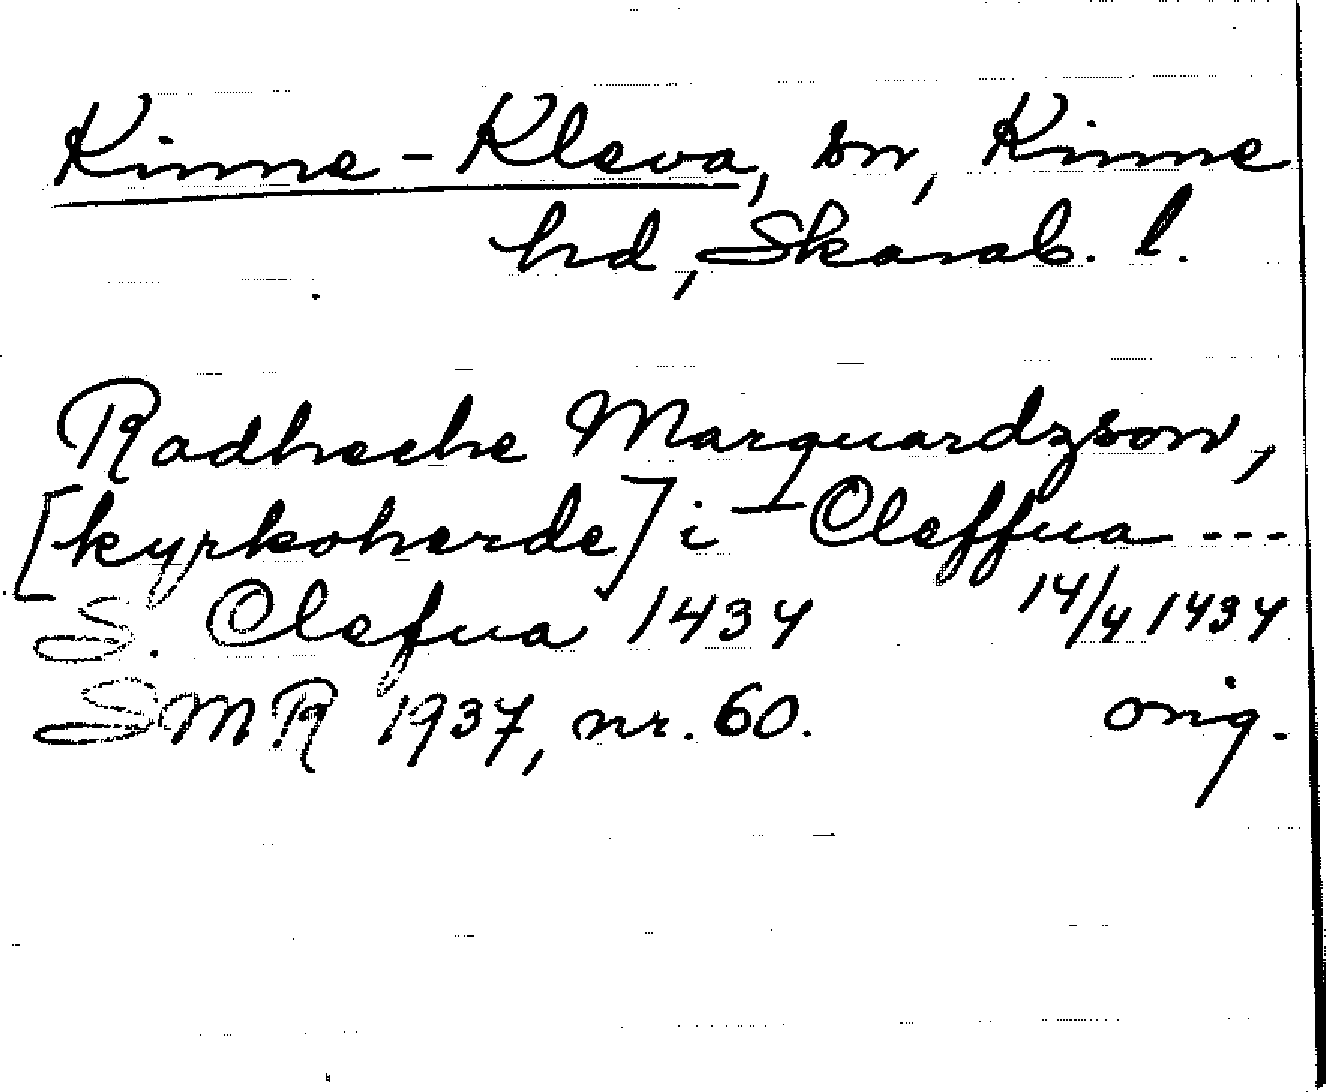 Kinne-Kleva, sn, Kinne
hd, Skarab. l.
Radheche Marquardzson,
[kyrkoherde] i Cleffua ---
S. Clefua 1434 14/4 1434
SMR 1937, nr. 60. orig.